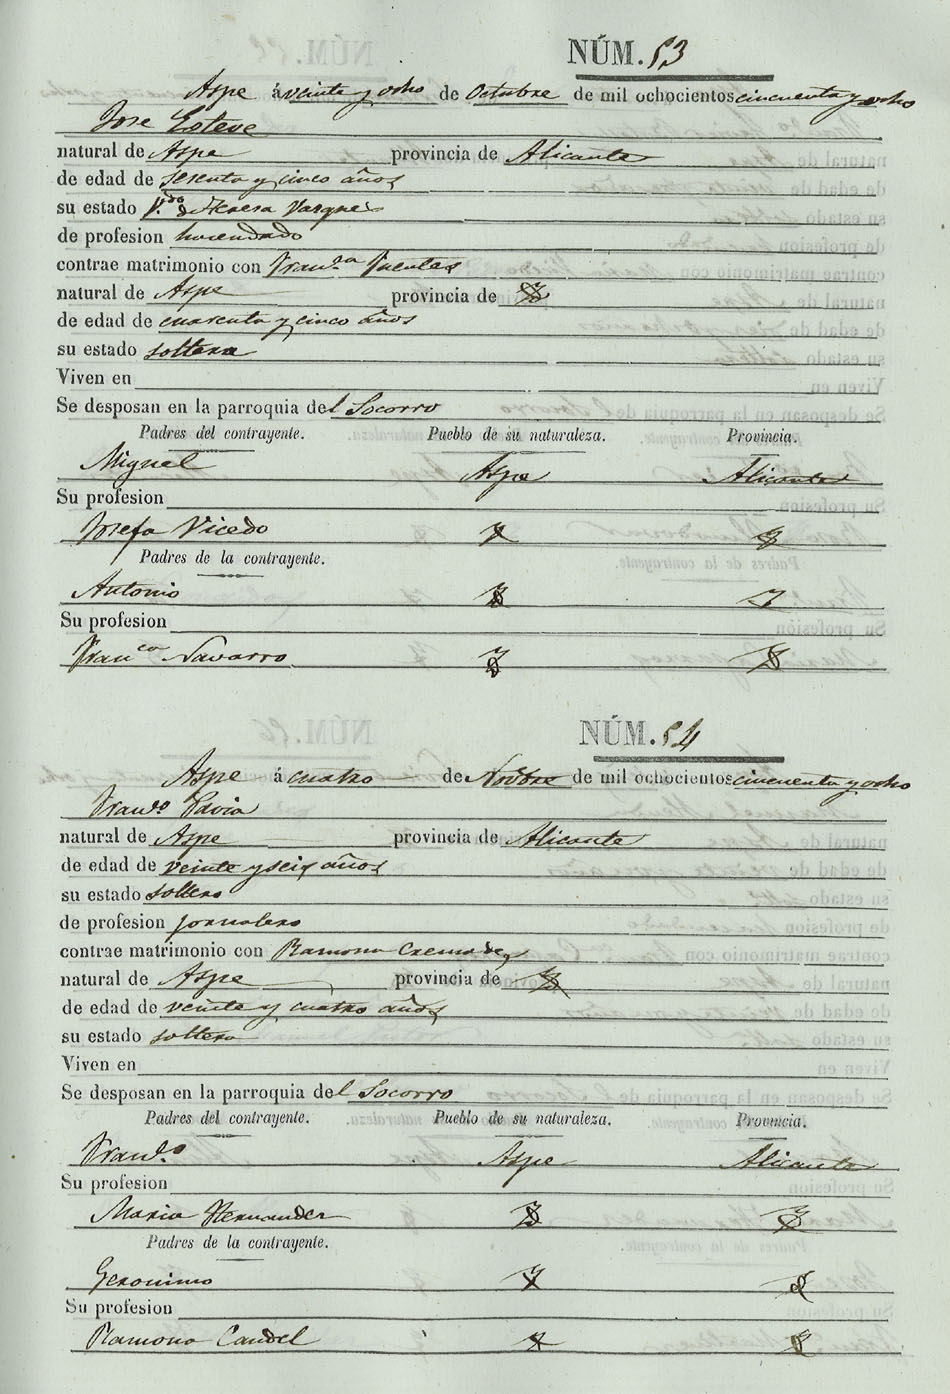 NÚM. 53
Aspe á veinte y ocho de Octubre de mil ochocientos cincuenta y ocho
Jose Esteve
natural de Aspe provincia de Alicante
de edad de sesenta y cinco años
su estado V.do de Teresa Vargues
de profesion hacendado
contrae matrimonio con Fran.ca Puentes
natural de Aspe provincia de
de edad de cuarenta y cinco años
su estado soltera
Viven en
Se desposan en la parroquia del Socorro
Padres del contrayente. Pueblo de su naturaleza. Provincia.
Miguel Aspe Alicante
Su profesion
Josefa Vicedo
Padres de la contrayente.
Antonio
Su profesion
Fran.ca Navarro
NÚM. 54
Aspe á cuatro de Novbre de mil ochocientos cincuenta y ocho
Fran.co Pavia
natural de Aspe provincia de Alicante
de edad de veinte y seis años
su estado soltero
de profesion jornalero
contrae matrimonio con Ramona Cremades
natural de Aspe provincia de
de edad de veinte y cuatro años
su estado soltera
Viven en
Se desposan en la parroquia del Socorro
Padres del contrayente. Pueblo de su naturaleza. Provincia.
Fran.co Aspe Alicante
Su profesion
Maria Hernandez
Padres de la contrayente.
Geronimo
Su profesion
Ramona Candel